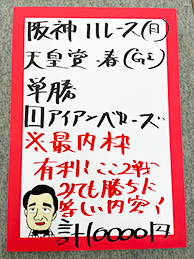 阪神11レース(日)
天皇賞・春(GⅠ)
単勝
1アイアンバローズ
※最内枠
有利!ここ2戦
みても勝ちに
等しい内容!
計10000円